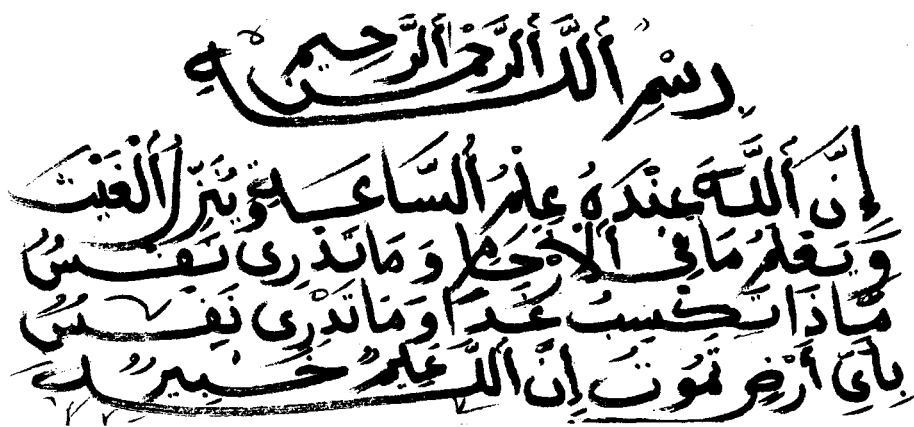 بِسْمِ اللَّهِ الرَّحْمَنِ الرَّحِيمِ
إِنَّ اللَّهَ عِنْدَهُ عِلْمُ السَّاعَةِ وَيُنَزِّلُ الْغَيْثَ
وَيَعْلَمُ مَا فِي الْأَرْحَامِ وَمَا تَدْرِي نَفْسٌ
مَّاذَا تَكْسِبُ غَدًا وَمَا تَدْرِي نَفْسٌ
بِأَيِّ أَرْضٍ تَمُوتُ إِنَّ اللَّهَ عَلِيمٌ خَبِيرٌ